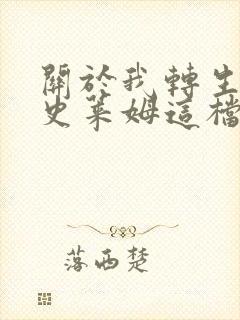 關於我轉生
史萊姆這檔
落西楚